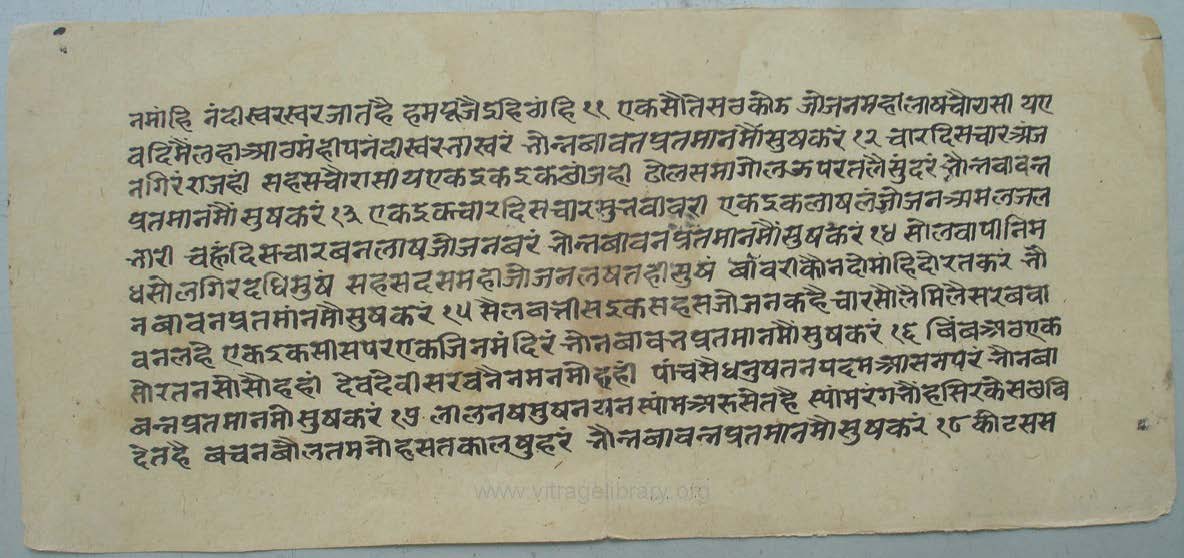 नमांहि नंदीस्वरस्वर जात है हम पूजै इहि ठांहि ११ एक सौ त्रेसठ कोड जोजन महा लाष चौरासी यए
व दिमै लहा आठमंही पनंदीस्वरनास्वरं भौन्न बावन प्रतमा नमौ सुषकरं १२ चार दिस चार अंज
न गिरं राजही सहस चौरासीय एक इक इक छाजही ढोल सम गोल ऊपर तलै सुंदरं भौन्न बावन्न
प्रतमा नमौं सुषकरं १३ एक इक चार दिस चार सुभ बावरी एक इक लाष लं जोजन अमल जल
भरी चहूं दिस चार बन लाष जोजन बरं भौन्न बावन प्रतमा नमौं सुषकरं १४ सोल वापीनि म
ध सोल गिर दधिमुषं सहस दस महा जोजन लषत ही सुषं बावरी कौन दो मांहि दो रतकरं भौ
न बावन प्रतमा नमौ सुषकरं १५ सैल बत्तीस इक सहस जोजन कहै चार सोलै मिलै सरब बा
वन लहै एक इक सीस पर एक जिनमंदिरं भौन बावन्न प्रतमा नमौं सुषकरं १६ बिंब अठ एक
सौ रतन सी सौहहीं देव देवी सरव नैन मन मौहही पांच सै धनुष तन पदम आसन परं भौन बा
बन्न प्रतमा नमौ सुषकरं १७ लाल नष मुष नयन स्यांम अरु सेत है स्यांम रंग भौंह सिर केस छबि
देत है बचन बौलत मनौ हसत कालुषुहरं भौन्न बावन्न प्रतमा नमौ सुषकरं १८ कोट सस
www.vitragelibrary.org